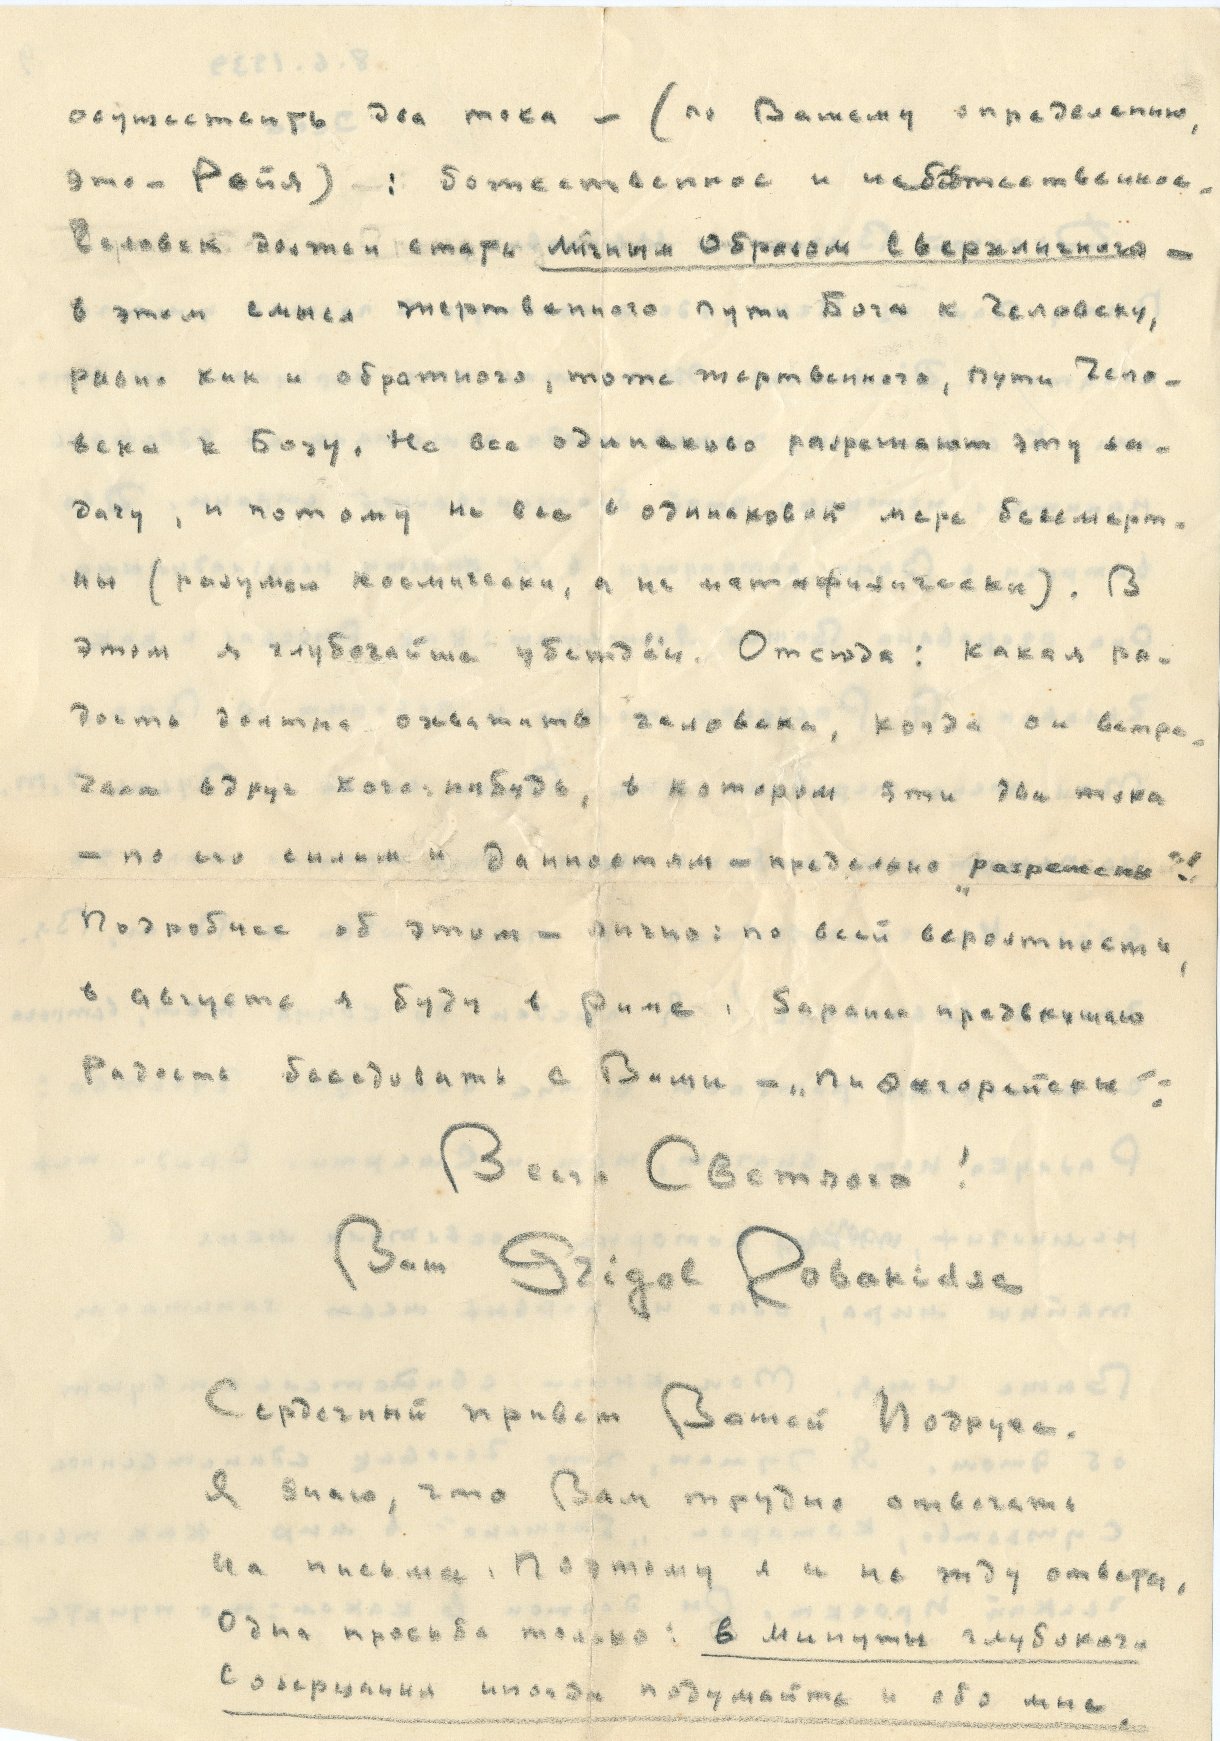 осуществить два тока — (по Вашему определению,
это — Рейя) — : божественное и небожественное.
Человек должен стать личным Образом Сверхличного —
в этом смысл жертвенного пути Бога к Человеку,
равно как и обратного, тоже жертвенного, пути Чело-
века к Богу. Не все одинаково разрешают эту за-
дачу, и потому не все в одинаковой мере бессмерт-
ны (разумею космически, а не метафизически). В
этом я глубочайше убеждён. Отсюда: какая ра-
дость должна охватить человека, когда он встре-
чает вдруг кого-нибудь, в котором эти два тока
— по его силам и данностям — предельно „разрешены“!
Подробнее об этом — лично: по всей вероятности,
в августе я буду в Риме. Заранее предвкушаю
Радость беседовать с Вами — „пиθагорейски“:
Всего Светлого!
Ваш Grigol Robakidse
Сердечный привет Вашей Подруге.
Я знаю, что Вам трудно отвечать
на письма. Поэтому я и не жду ответа.
Одна просьба только: в минуты глубокого
Созерцания иногда подумайте и обо мне.